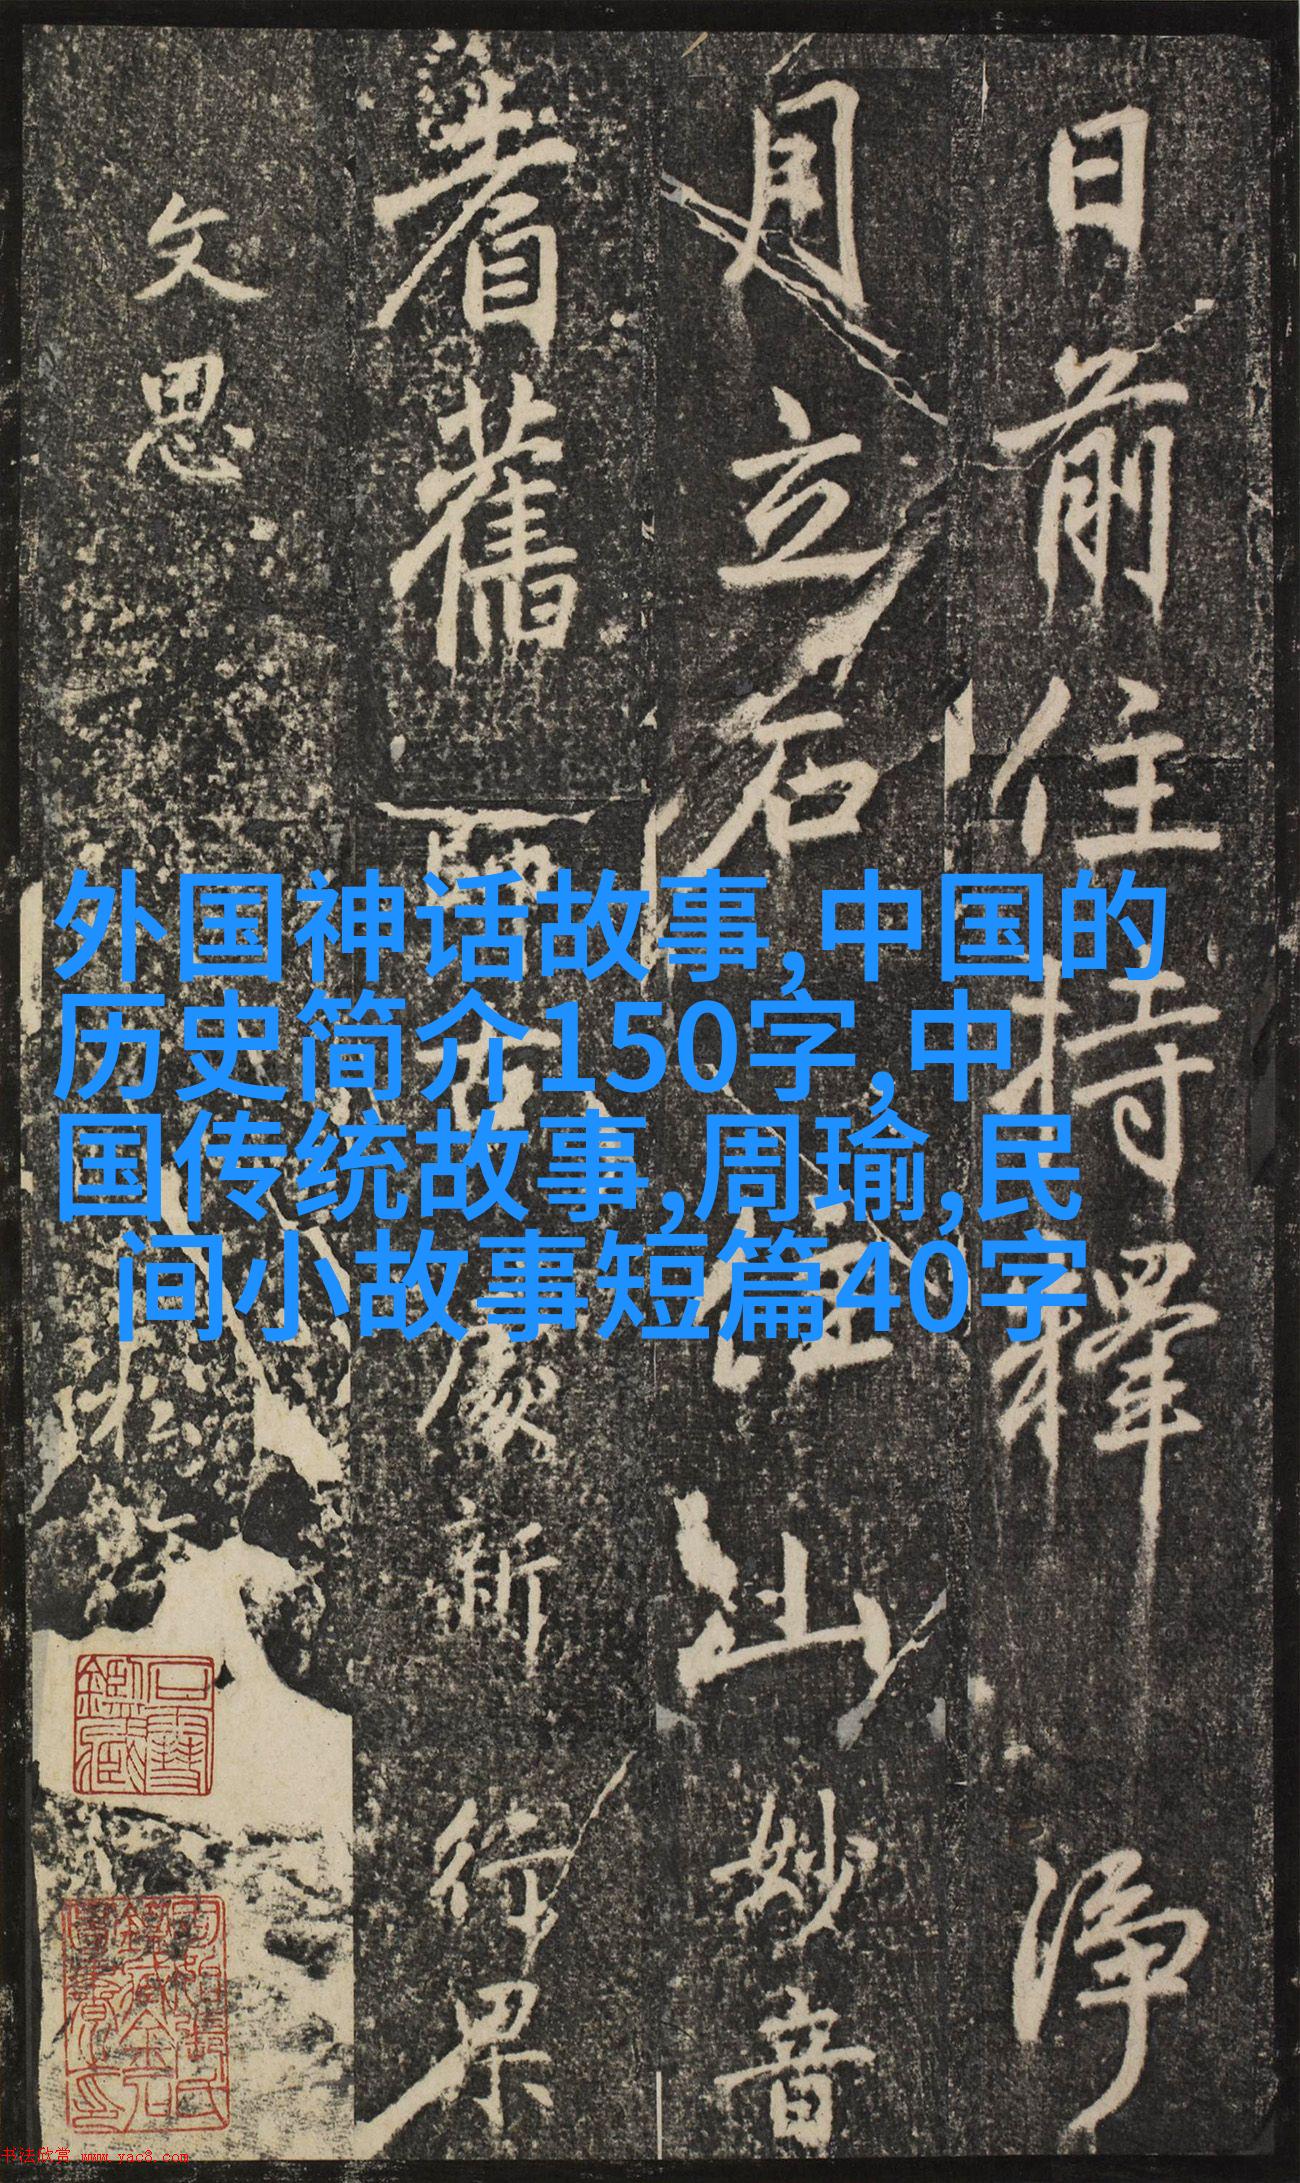 日前住持釋淨
月立石住山妙音
耆舊師古處新行果
文思
外国神话故事,中国的
历史简介150字,中
国传统故事,周瑜,民
间小故事短篇40字
书法欣赏 www.yac8.com